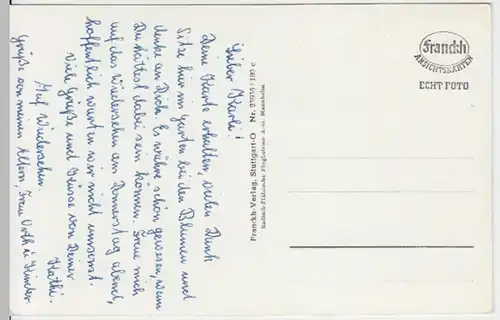 Lieber Karli!
Deine Karte erhalten, vielen Dank
Sitze hier im Garten bei den Blumen und
denke an Dich. Es währe schön gewesen, wenn
Du hättest dabei sein können. Freue mich
auf das Wiedersehn am Donnerstag abend,
hoffentlich warten wir nicht umsonst.
Viele Grüße und Küsse von Deiner
Kathi.
Auf Wiedersehen.
Grüße von meinen Eltern, Frau u. Kinder
Franckh-Verlag, Stuttgart-O Nr.
Badisch-Pfälzische Flugbetrieb A.-G. Mannheim
Franckh
ANSICHTSKARTEN
ECHT FOTO